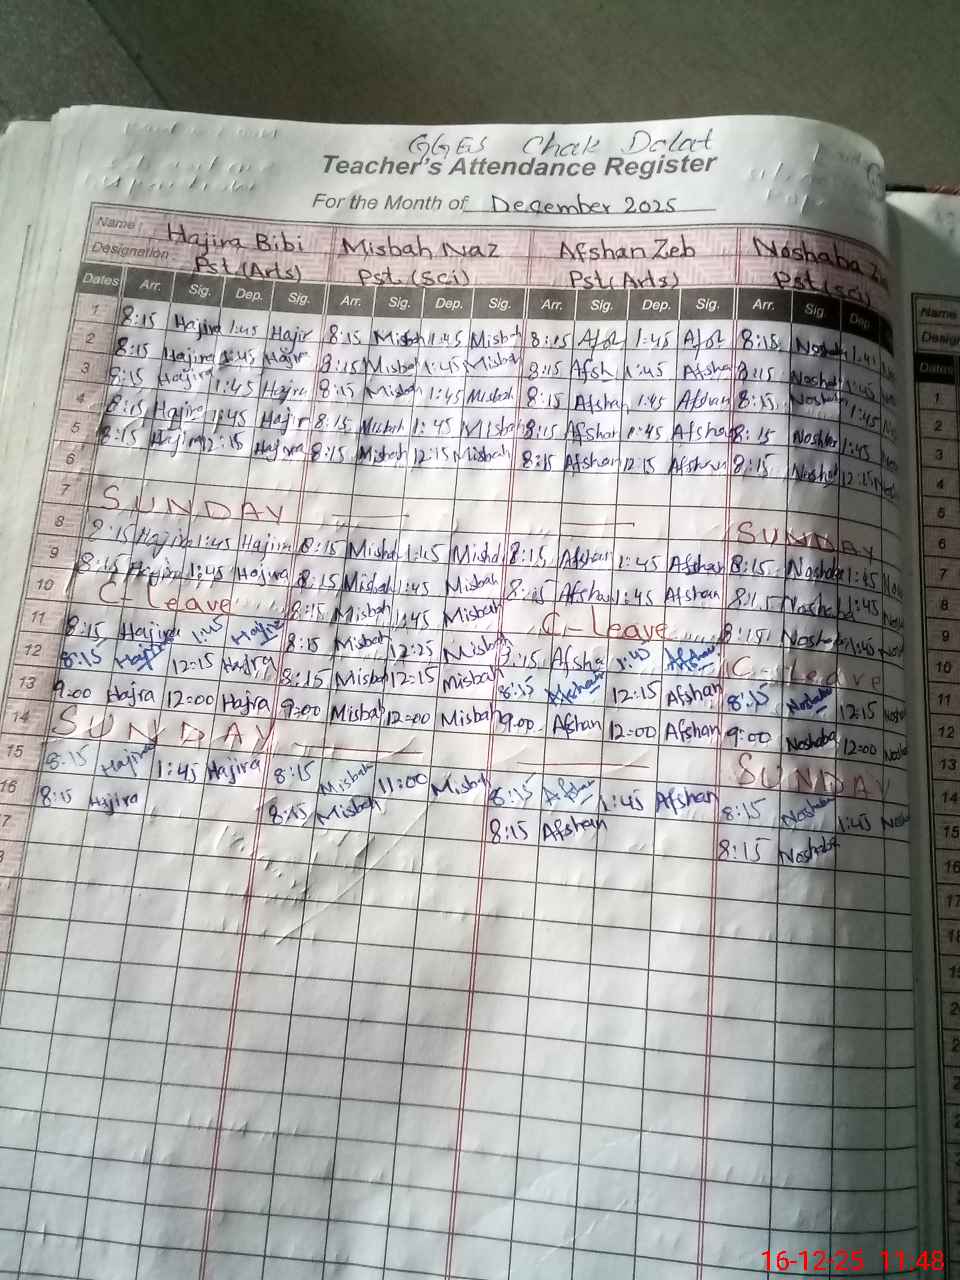 GGES Chak Dalat
Teacher's Attendance Register
For the Month of December 2025
Name: Hajira Bibi Misbah Naz Afshan Zeb Noshaba
Designation Pst (Arts) Pst (Sci) Pst (Arts) Pst (Sci)
Dates Arr. Sig. Dep. Sig. Arr. Sig. Dep. Sig. Arr. Sig. Dep. Sig. Arr. Sig. Dep.
1 8:15 Hajira 1:45 Hajir 8:15 Misbah 1:45 Misbah 8:15 1:45 8:15 Noshab
2 8:15 Hajira 1:45 Hajira 8:15 Misbah 1:45 Misbah 8:15 Afsh 1:45 Afsha 8:15 Noshab 1:45
3 8:15 Hajira 1:45 Hajira 8:15 Misbah 1:45 Misbah 8:15 Afshan 1:45 Afshan 8:15 Noshaba 1:45
4 8:15 Hajira 1:45 Hajir 8:15 Misbah 1:45 Misbah 8:15 Afshan 1:45 Afshan 8:15 1:45
5 8:15 Hajira 12:15 Hajira 8:15 Misbah 12:15 Misbah 8:15 Afshan 12:15 Afshan 8:15 Noshab 12:15
6
7 SUNDAY SUNDAY
8 8:15 Hajira 1:45 Hajira 8:15 Misbah 1:45 Misbah 8:15 Afshan 1:45 Afshan 8:15 Noshaba 1:45
9 8:15 Hajira 1:45 Hajira 8:15 Misbah 1:45 Misbah 8:15 Afshan 1:45 Afshan 8:15 Noshaba 1:45
10 C-Leave 8:15 Misbah 1:45 Misbah C-Leave 8:15 Noshaba 1:45
11 8:15 Hajira 1:45 Hajira 8:15 Misbah 12:25 Misbah 8:15 Afsha 1:45 Afshan C-Leave
12 8:15 Hajira 12:15 Hajira 8:15 Misbah 12:15 Misbah 8:15 Afshan 12:15 Afshan 8:15 Noshaba 12:15
13 9:00 Hajra 12:00 Hajra 9:00 Misbah 12:00 Misbah 9:00 Afshan 12:00 Afshan 9:00 Noshaba 12:00
14 SUNDAY SUNDAY
15 8:15 Hajira 1:45 Hajira 8:15 Misbah 11:00 Misbah 8:15 Afshan 1:45 Afshan 8:15 Noshaba 1:45
16 8:15 Hajira 8:15 Misbah 8:15 Afshan 8:15 Noshaba
Name
Dates
1
2
3
4
5
6
7
8
9
10
11
12
13
14
15
16
17
16-12-25 11:48